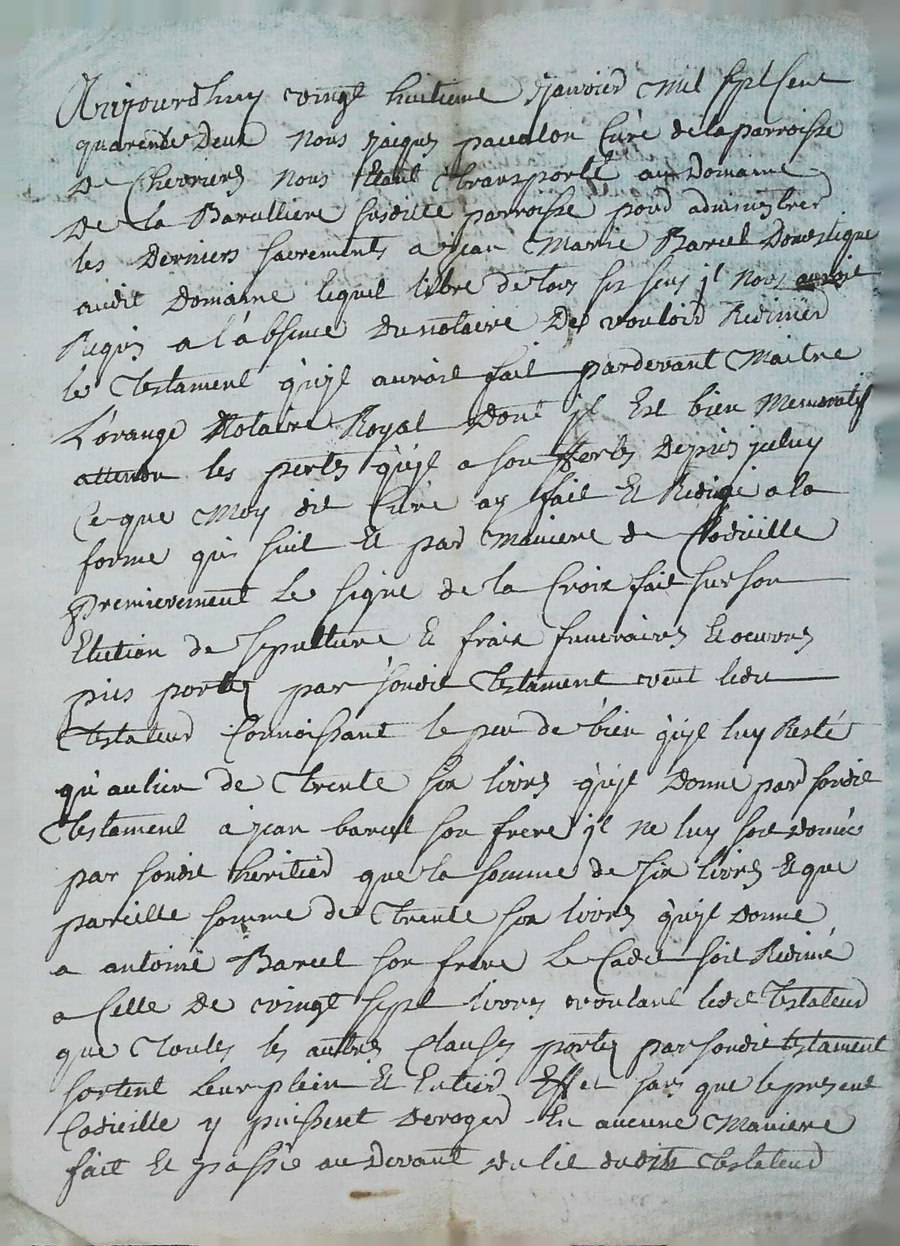 Aujourdhuy vingt huitieme Janvier mil sept cent
quarente deux nous jacques pacalon Curé de la parroisse
de Chevrieres nous Etant transporté au Domaine
De la Barulliere susditte parroisse pour administrer
les Derniers sacrements a jean Marie Barcel Domestique
audit Domaine lequel libre de tous ses sens jl nous auroit
Requis a l'absence du notaire De vouloir Redimer
le Testament qu'yl auroit fait pardevant Maitre
Lorange Notaire Royal Dont jl Est bien Memoratif
attendu les pertes qu'yl a souffertes Depuis jceluy
Ce que Moy dit Curé ay fait Et Redigé a la
forme qui suit Et par Maniere de Codicille
premierement Le signe de la Croix fait sur son
Election de sepulture Et fraix funeraires Et oeuvres
pies portez par sondit Testament veut ledit
Testateur Connoissant le peu de bien qu'yl luy Reste
qu'au lieu de Trente six livres qu'yl Donne par sondit
Testament a jean barcel son frere jl ne luy soit donné
par sondit heritier que la somme de six livres Et que
pareille somme de Trente six livres qu'yl Donne
a antoine Barcel son frere Le Cadet soit Redimé
a Celle de vingt sept livres voulant ledit Testateur
que Toutes les autres Clauses portez par sondit testament
sortent Leur plein Et Entier Effet sans que le present
Codicille y puissent deroger En aucune Maniere
fait Et passé au Devant du lit dudit Testateur